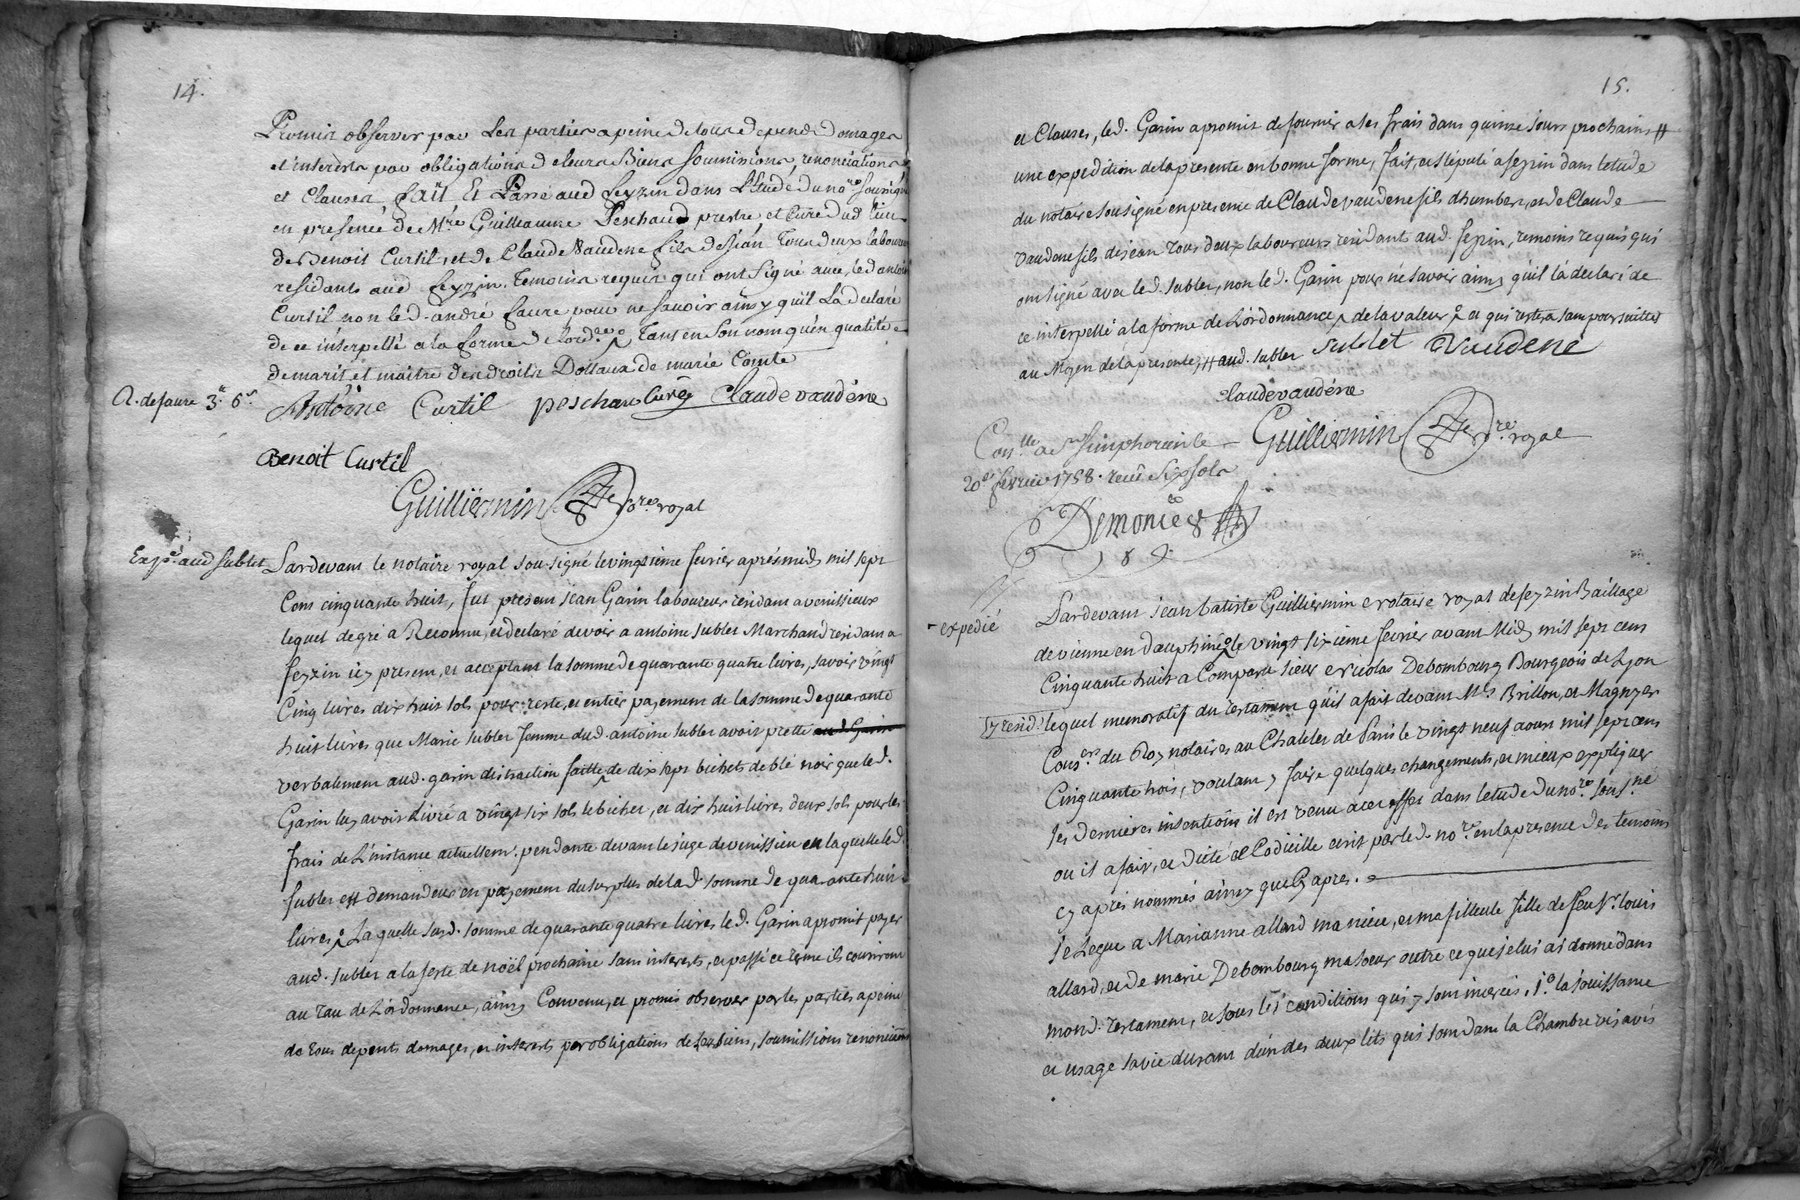 14.
Promis observer par les parties a peine de tous depends domages
et interests par obligations de leurs Biens soumissions, renonciations
et clauses fait et Passé aud feyzin dans L'Etude du no.re sousigné
en presence de M.re Guilleaume Peschaud prestre et Curé dud lieu
de Benoit Curtil, et de Claude Vaudene fils de Jean Tous deux laboureurs
residants aud feyzin, Temoins requis qui ont signé avec led antoine
Curtil non led. andré faure pour ne savoir ainsy quil La declaré
de ce interpellé a la forme de lord.ce Tant en son nom qu'en qualité
de marit et maitre des droits Dottaux de marie Comte
R. de faure 3.# 6.s
Antoine Curtil peschau Curé Claude vaudéne
Benoit Curtil
Guilliermin No.re royal
Exp.é aud sublet
Pardevant le notaire royal sousigné le vingtieme fevrier aprés midy mil sept
Cens cinquante huit, fut present jean Garin laboureur residant a venissieux
lequel de gré a Reconnu, et declaré devoir a antoine sublet Marchand residant a
feyzin icy present, et acceptant la somme de quarante quatre livres, savoir vingt
Cinq livres dix huit sols pour reste, et entier payement de la somme de quarante
huit livres que Marie sublet femme dud. antoine sublet avoit pretté aud Garin
verbalement aud. garin distraction faitte de dix sept bichets de blé noir que led.
Garin luy avoit Livré a vingt six sols le bichet, et dix huit livres deux sols pour les
frais de L'instance actuellem.t pendante devant le juge de venissieu en laquelle led.
sublet est demandeur en payement du surplus de lad. somme de quarante huit
livres, Laquelle susd. somme de quarante quatre livres led. Garin a promit payer
aud. sublet a la feste de noël prochaine sans interests, et passé ce terme ils couriront
au Taux de L'ordonnance, ainsy Convenu, et promis observer par les parties a peine
de tous depents domages, et interests par obligations de Leurs biens, soumissions renonciations
15.
et Clauses, led. Garin a promit de fournir a ses frais dans quinze jours prochains #
une expedition de la presente en bonne forme, fait, et stipulé a feyzin dans letude
du notaire sousigné en presence de Claude vaudene fils dhumbert, et de Claude
vaudene fils de jean tous deux laboureurs residants aud. feyzin, temoins requis qui
ont signé avec led. sublet, non led. Garin pour ne savoir ainsy quil la declaré de
ce interpellé a la forme de L'ordonnance, de la valeur, et qui reste a sans poursuittes
au Moyen de la presente, # aud. sublet sublet vaudene
claude vaudéne
Guilliermin No.re royal
Con.lle a S.t Simphorien le
20.e fevrier 1758. receu six sols
Demonicer
expedié
Pardevant jean batiste Guilliermin notaire royal de feyzin Baillage
de vienne en dauphiné, le vingt sixieme fevrier avant Midy mil sept cens
Cinquante huit a Comparu sieur Nicolas Debombourg Bourgeois de Lyon
y resid.t lequel memoratif du testament qu'il a fait devant M.es Brillon, et Magnyer
Cons.ers du Roy notaires au Chatelet de Paris le vingt neuf aoust mil sept cens
Cinquante trois, voulant y faire quelques changements, et mieux expliquer
ses dernieres intentions il est venu a cet effet dans letude du no.re sous.né
ou il a fait, et dicté ce Codicille ecrit par led. no.re en la presence des temoins
cy aprés nommés ainsy que cy apres.
je Legue a Marianne allard ma niéce, et ma filleule fille de feu s.r louis
allard, et de marie Debombourg ma soeur outre ce que je lui ai donné dans
mond. testament, et sous les conditions qui y sont inserées, 1.o la jouissance
et usage sa vie durant d'un des deux lits qui sont dans la Chambre vis avis